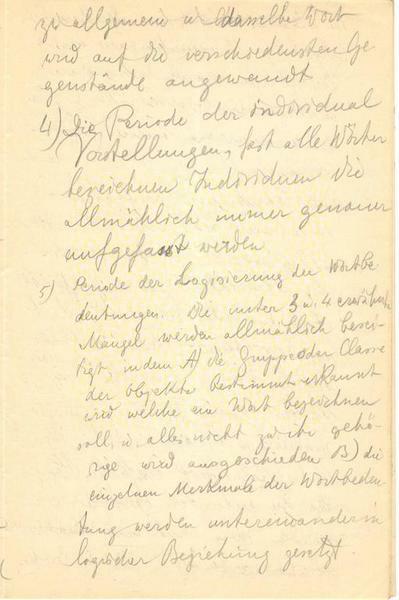 zu allgemein u. dasselbe Wort
wird auf die verschiedensten Ge
genstände angewandt
4) Die Periode der individual
Vorstellungen, fast alle Wörter
bezeichnen Individuen die
allmählich immer genauer
aufgefasst werden
5) Periode der Logisierung der Wortbe
deutungen. Die unter 3 u. 4 erwähnten
Mängel werden allmählich besei
tigt, indem A) die Gruppe oder Classe
der Objekte bestimmt erkannt
wird welche ein Wort bezeichnen
soll, u. alles nicht zu ihr gehö
rige wird ausgeschieden B) die
einzelnen Merkmale der Wortbedeu
tung werden untereinander in
logischer Beziehung gesetzt.